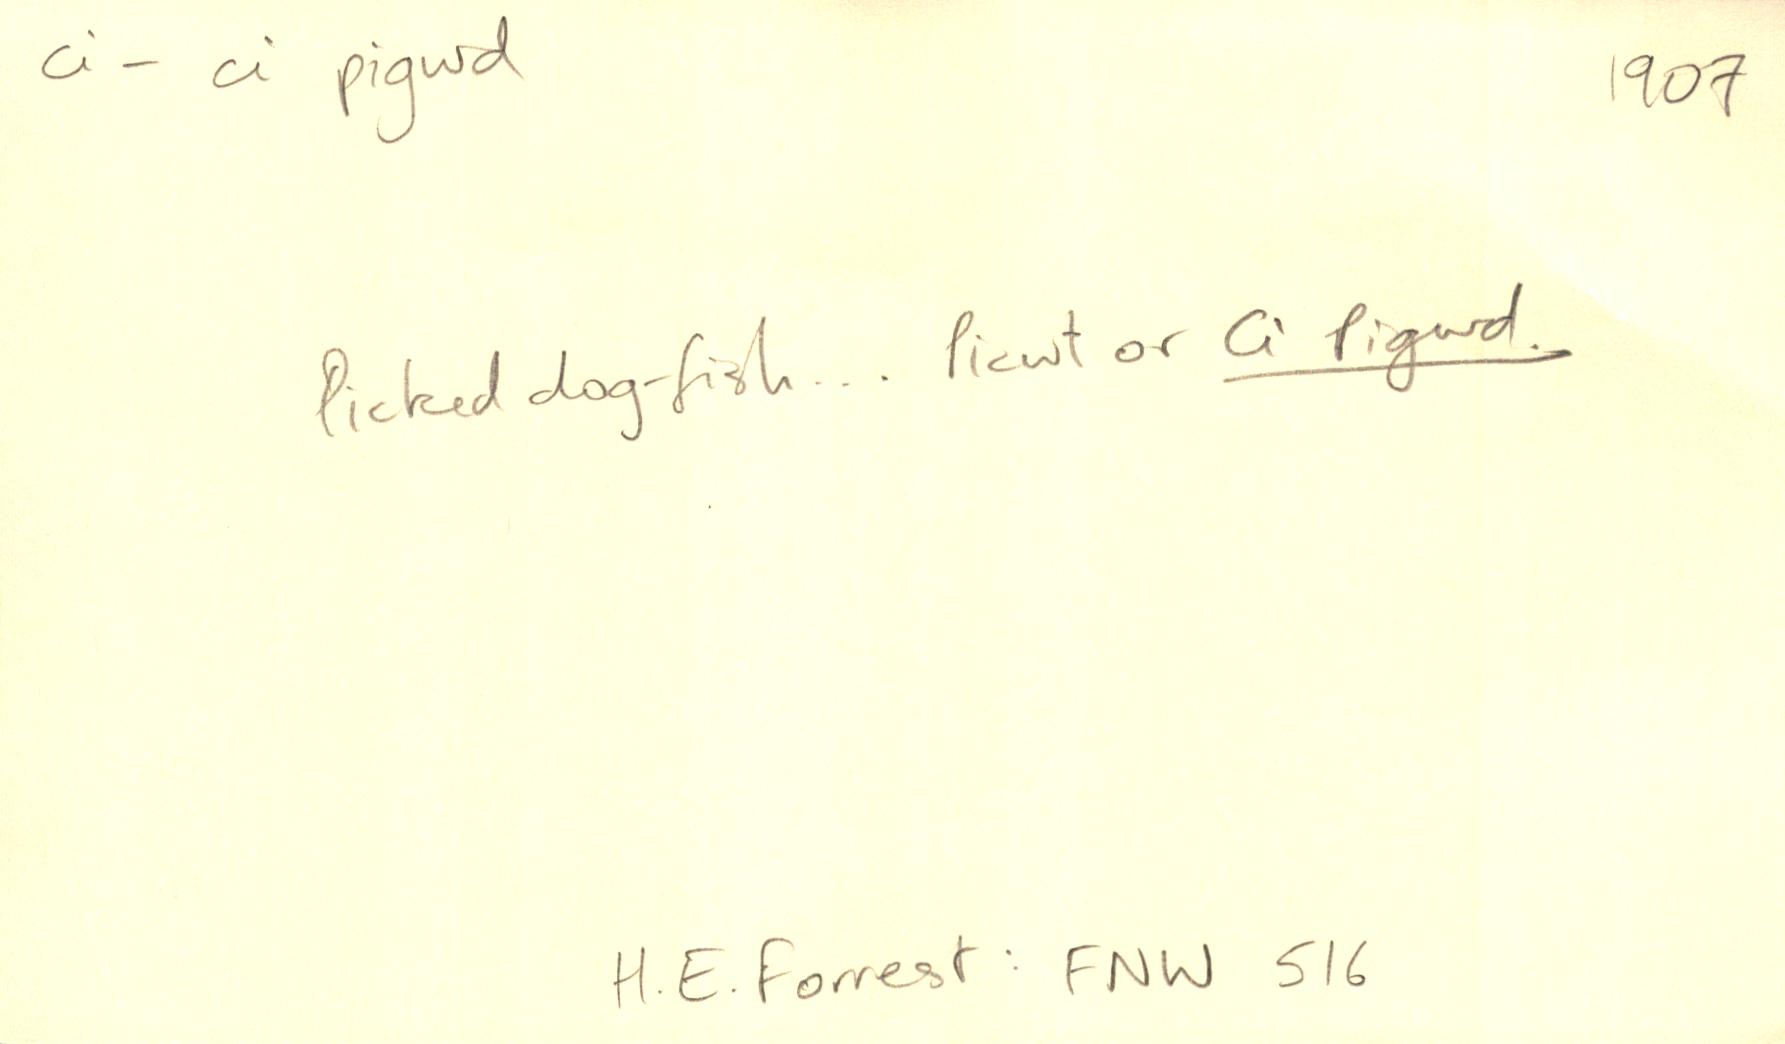 ci - ci pigwd 1907
Picked dog-fish... Picwt or Ci Pigwd.
H.E. Forrest: FNW 516